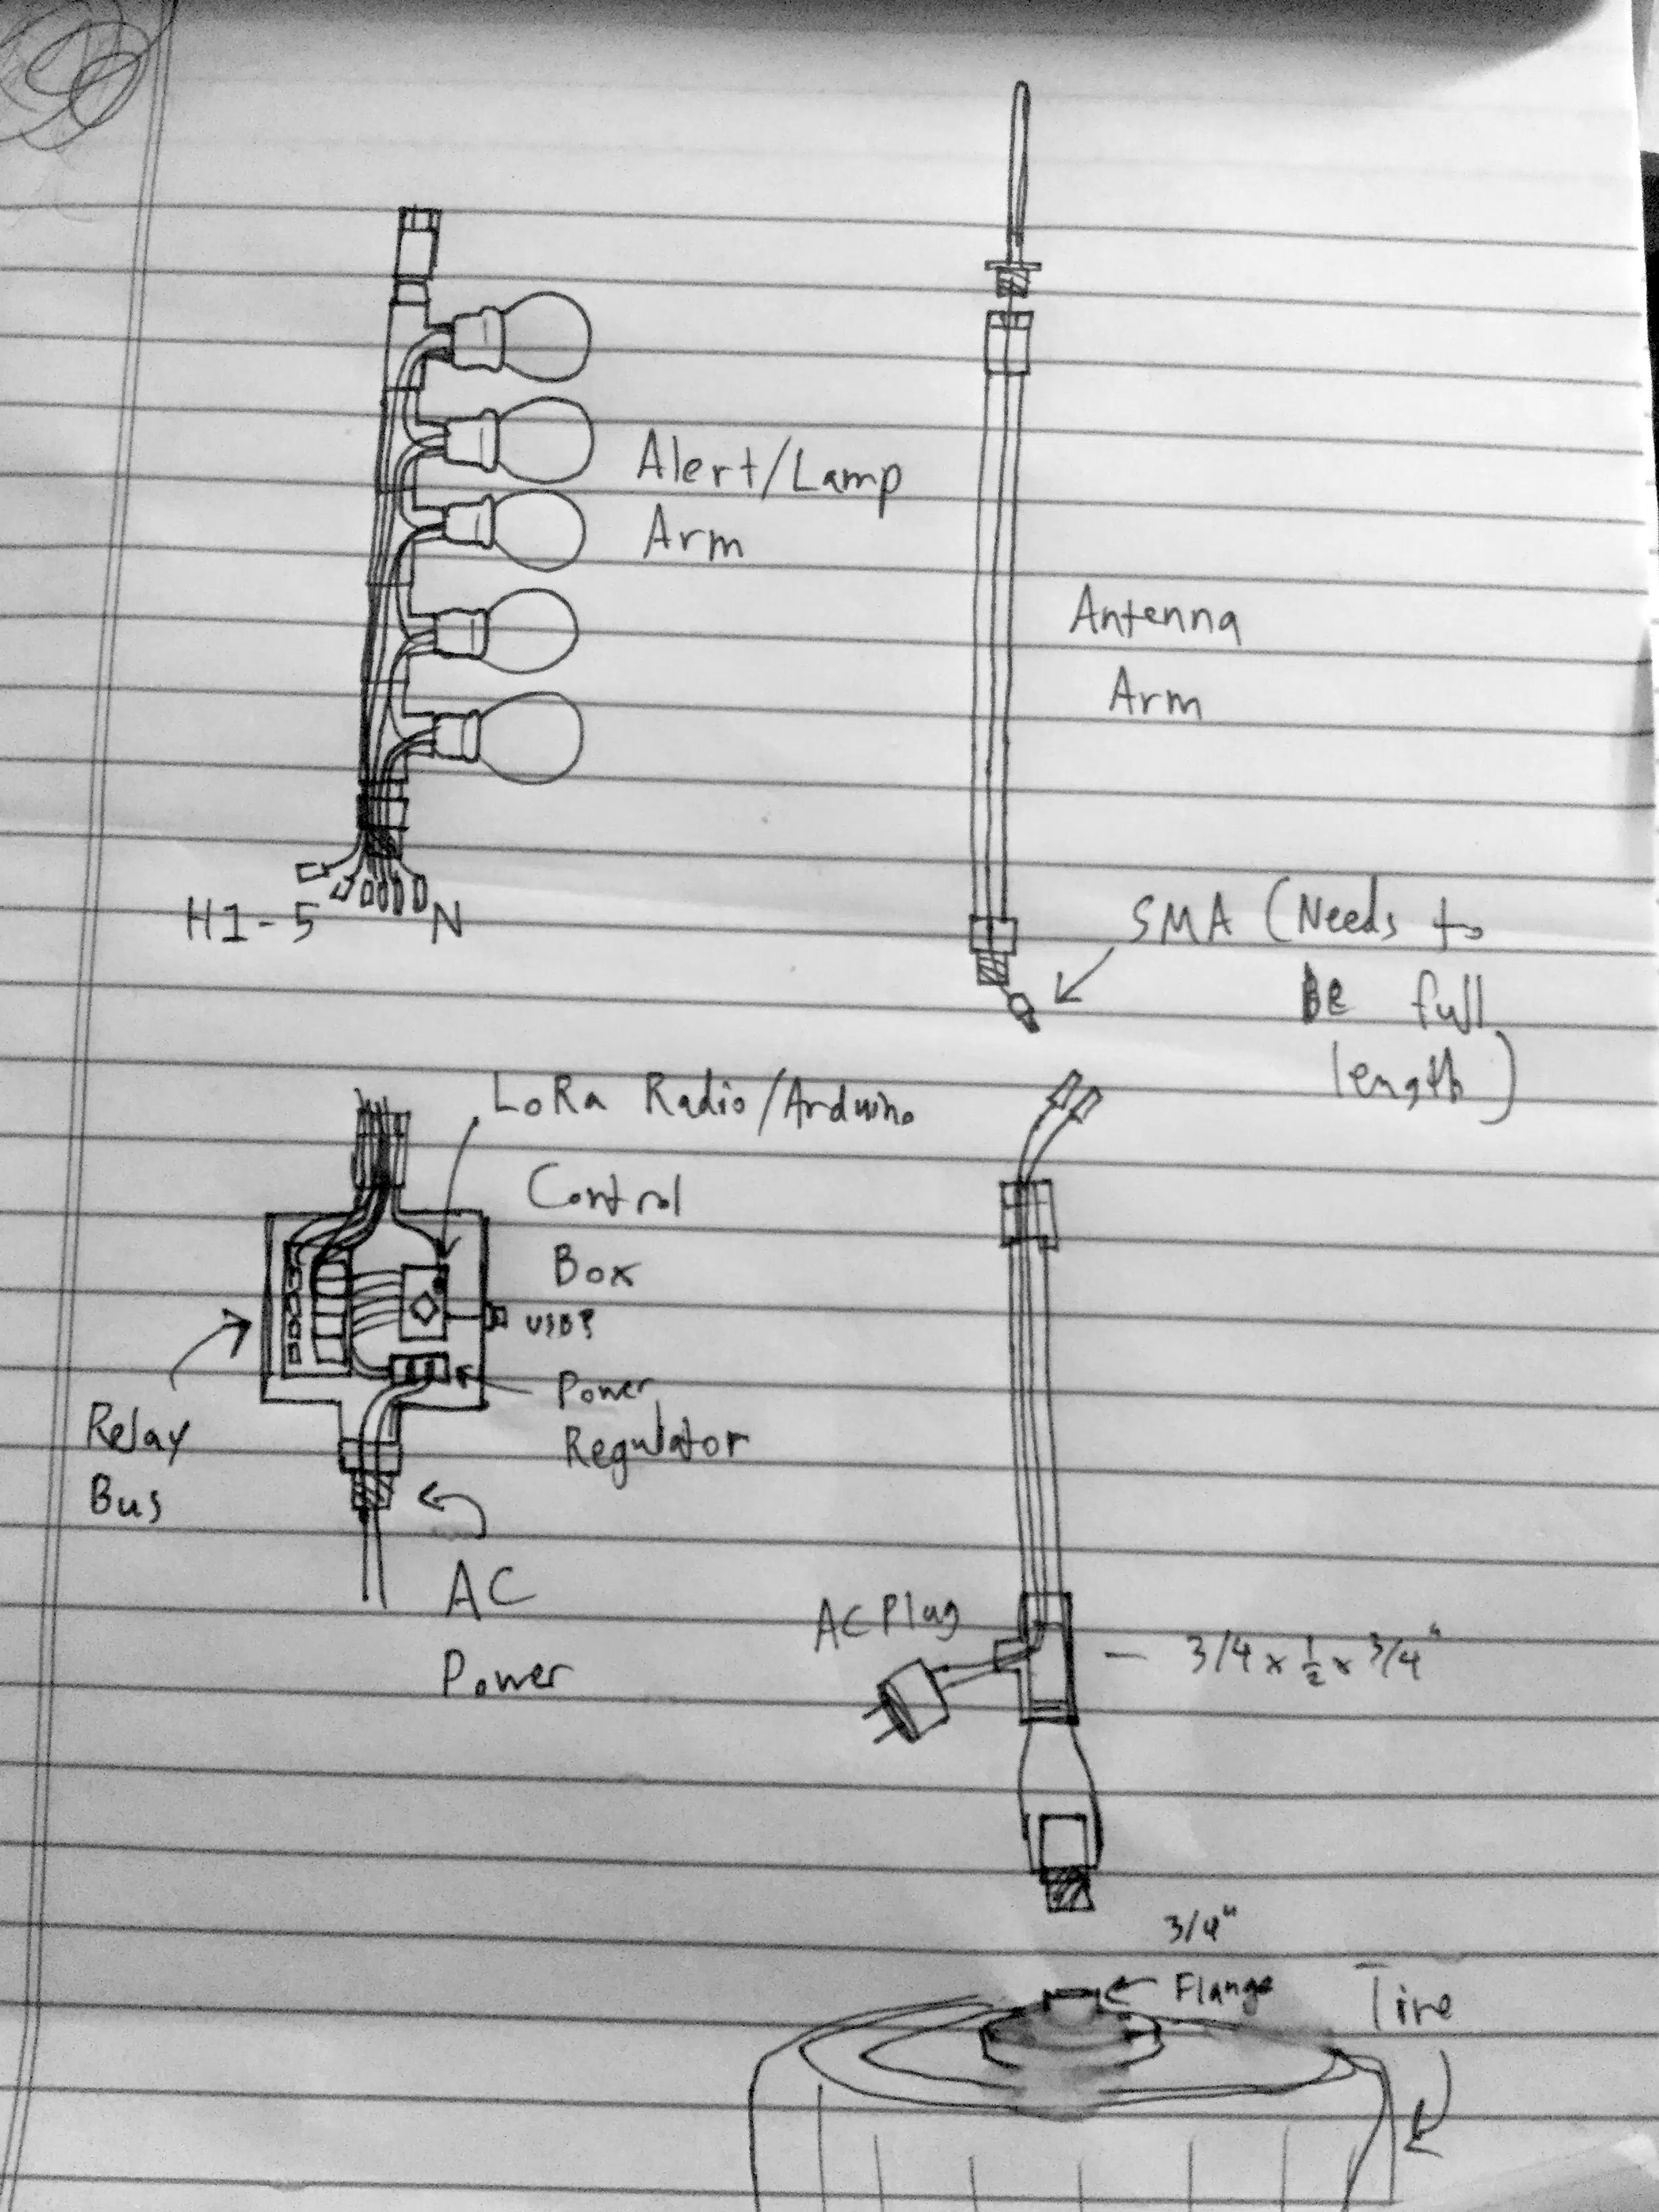 Alert/Lamp
Arm
Antenna
Arm
H1-5
N
SMA (Needs to
Be full
length)
LoRa Radio/Arduino
Control
Box
USB?
Power
Regulator
Relay
Bus
AC
Power
AC Plug
3/4 x 1/2 x 3/4"
3/4"
Flange
Tire